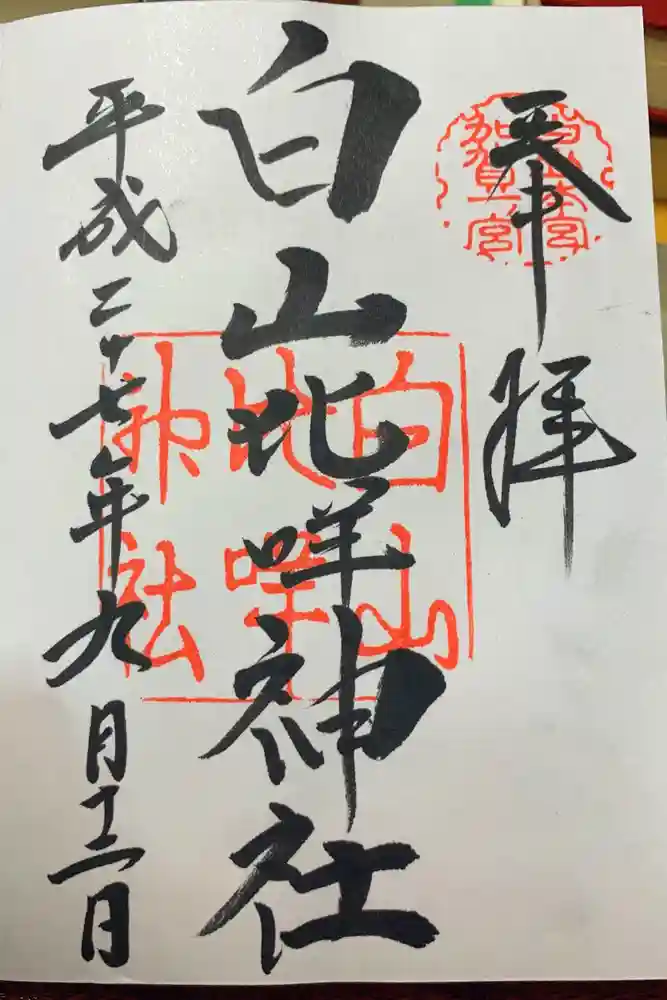 奉拝
白山本宮
加賀一宮
白山比咩神社
白山
比咩
神社
平成二十七年九月十二日